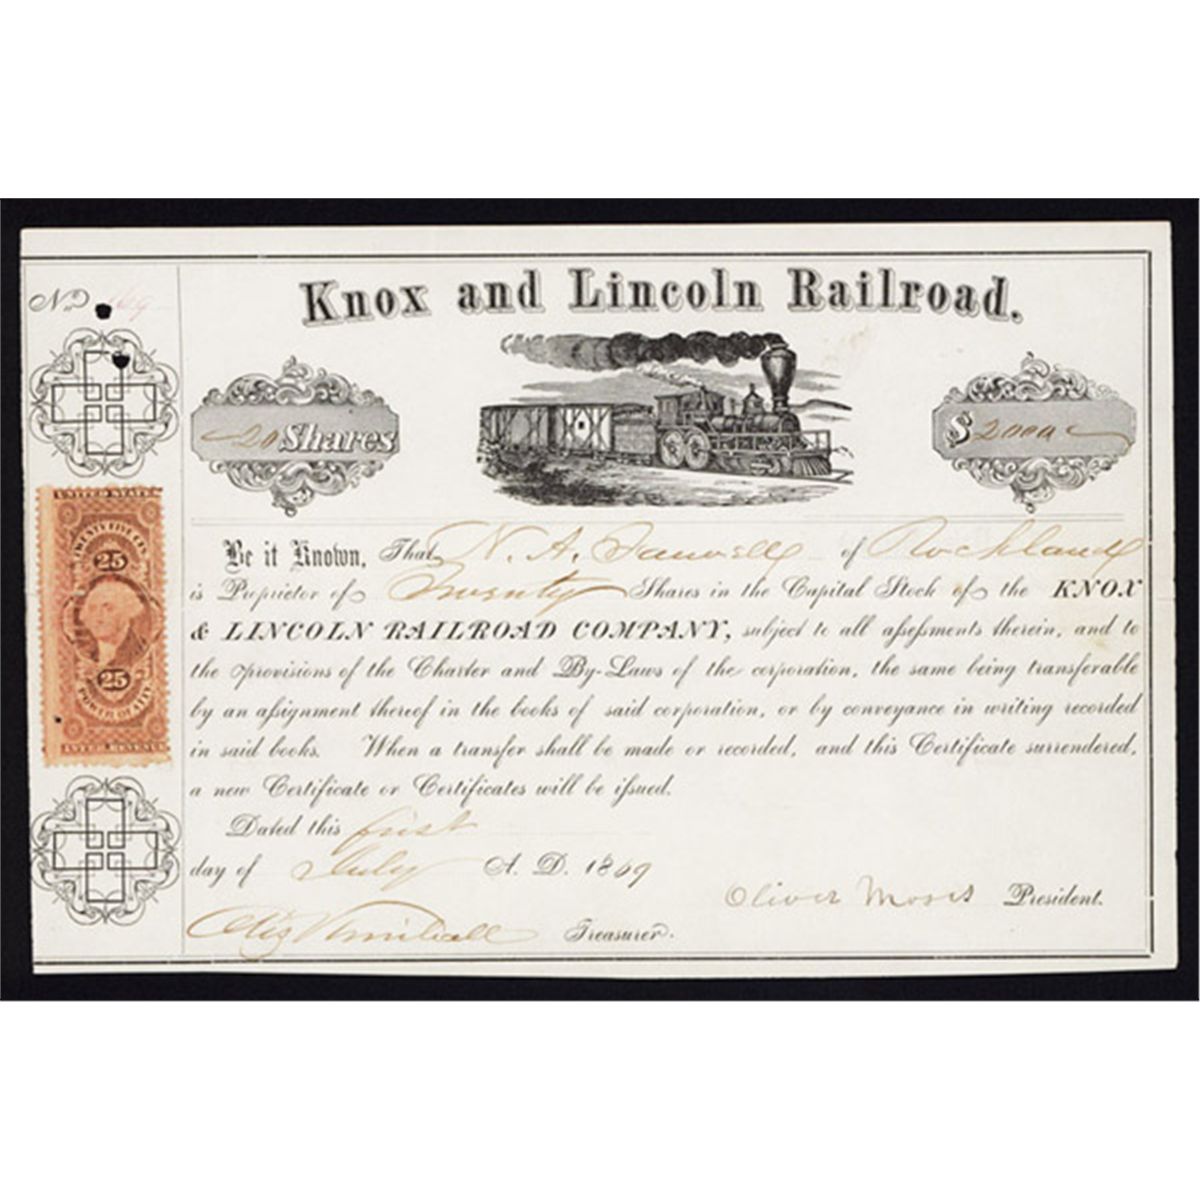 Knox and Lincoln Railroad.
No.
20 Shares
$2000
UNITED STATES
TWENTY FIVE CTS.
25
25
POWER OF ATT'Y
INTER. REVENUE
Be it Known, That N. A. Farwell of Rockland
is Proprietor of Twenty Shares in the Capital Stock of the KNOX
& LINCOLN RAILROAD COMPANY, subject to all assessments therein, and to
the provisions of the Charter and By-Laws of the corporation, the same being transferable
by an assignment thereof in the books of said corporation, or by conveyance in writing recorded
in said books. When a transfer shall be made or recorded, and this Certificate surrendered,
a new Certificate or Certificates will be issued.
Dated this first
day of July A. D. 1869
Oliver Moses President.
Otis Kimball Treasurer.